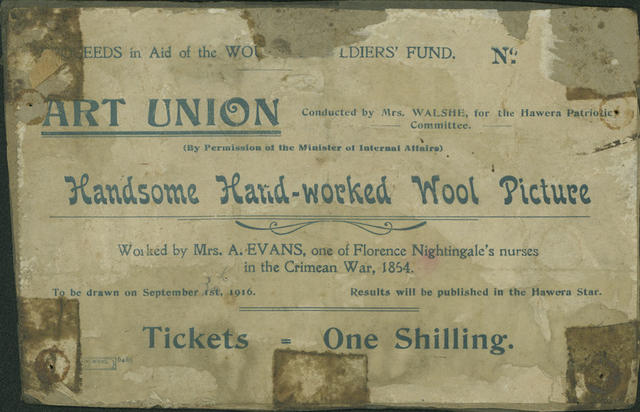 EEDS in Aid of the WOU LDIERS' FUND. No.
ART UNION
Conducted by Mrs. WALSHE, for the Hawera Patriotic
Committee.
(By Permission of the Minister of Internal Affairs)
Handsome Hand-worked Wool Picture
Worked by Mrs. A. EVANS, one of Florence Nightingale's nurses
in the Crimean War, 1854.
To be drawn on September 1st, 1916. Results will be published in the Hawera Star.
Tickets = One Shilling.